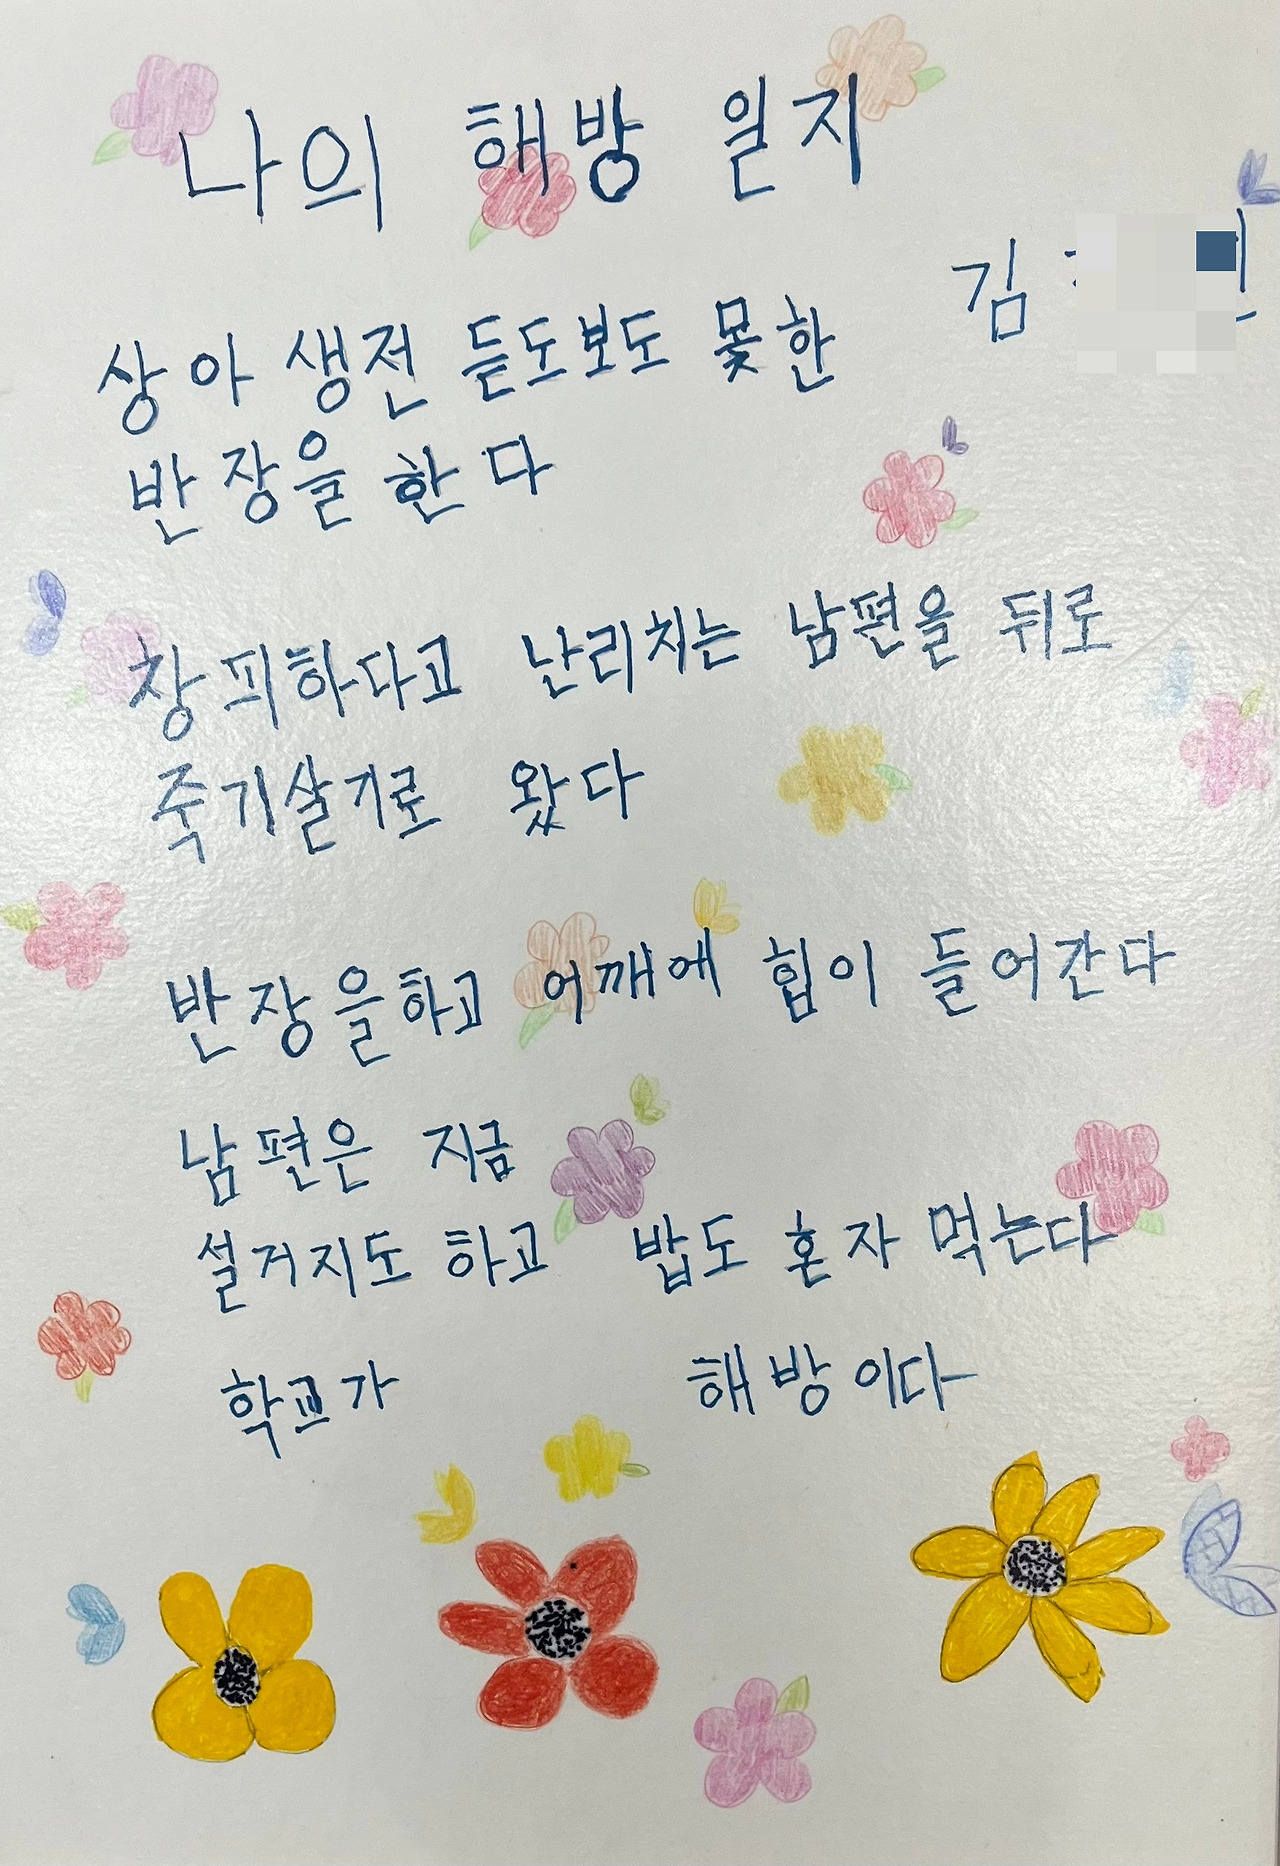 나의 해방 일지
김
상아 생전 듣도보도 못한
반장을 한다
창피하다고 난리치는 남편을 뒤로
죽기살기로 왔다
반장을하고 어깨에 힘이 들어간다
남편은 지금
설거지도 하고 밥도 혼자 먹는다
학교가 해방이다